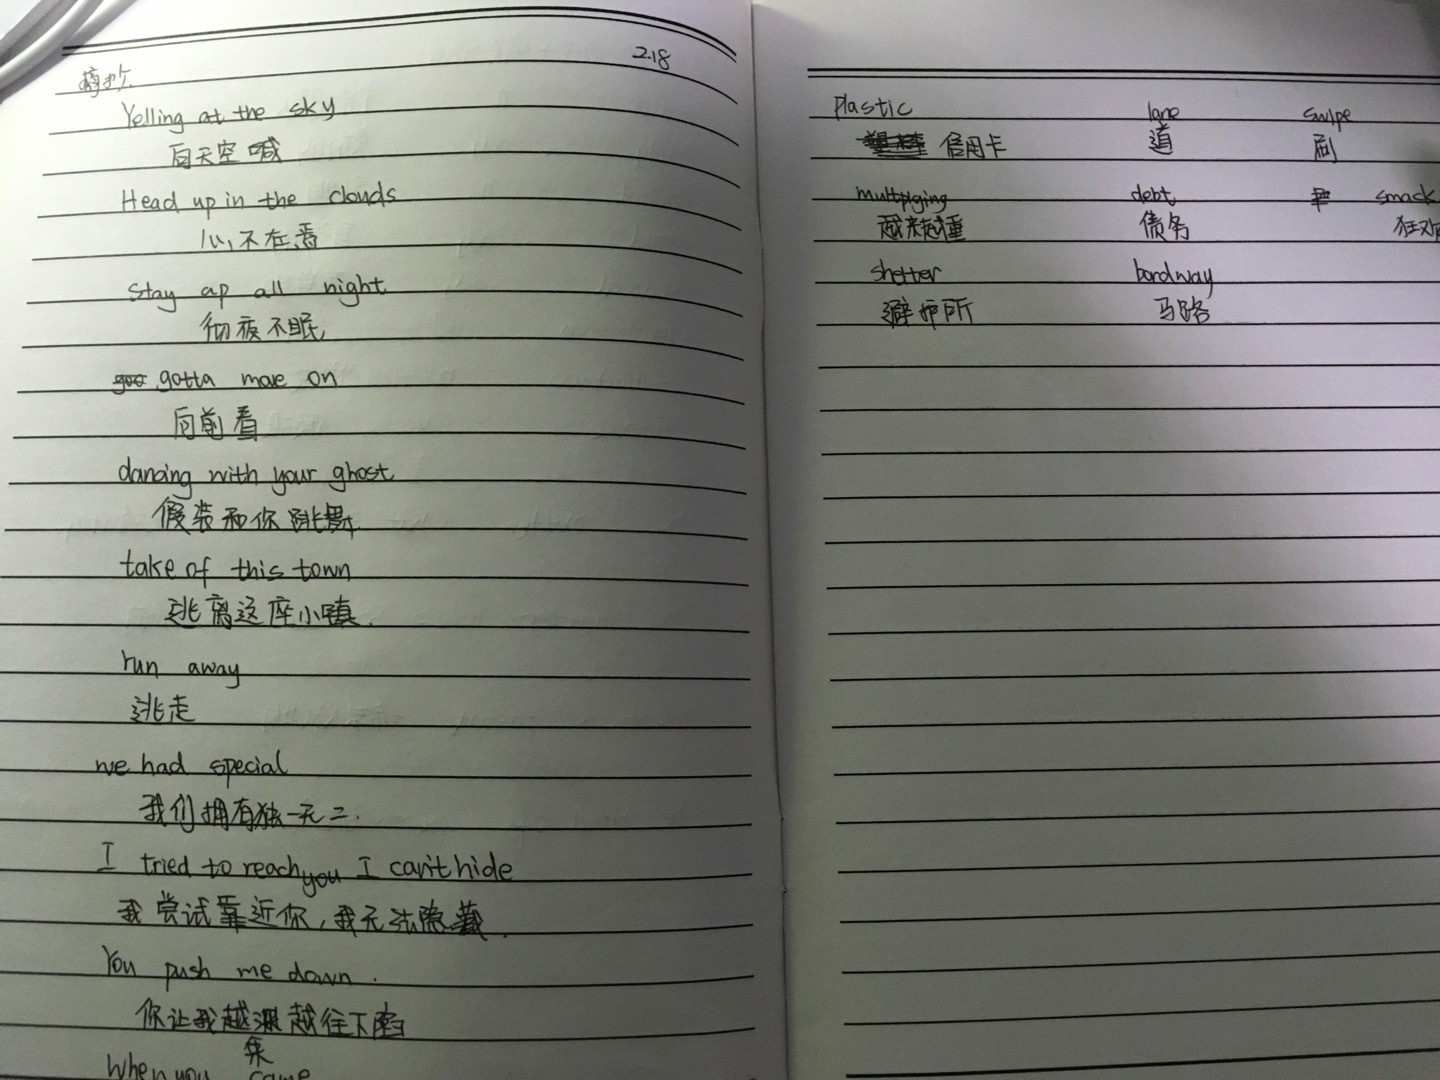 摘抄
2.18
Yelling at the sky
向天空喊
Head up in the clouds
心不在焉
Stay up all night
彻夜不眠
gotta move on
向前看
dancing with your ghost
假装和你跳舞
take of this town
逃离这座小镇.
run away
逃走
we had special
我们拥有独一无二.
I tried to reach you I can't hide
我尝试靠近你,我无法隐藏.
You push me down.
你让我越来越往下陷
When you came
plastic lane swipe
信用卡 道 刷
multiplying debt smack
越来越重 债务 狂欢
shetter bordway
避护所 马路